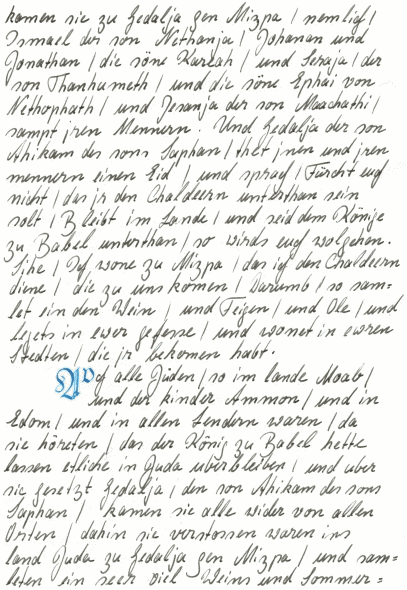 kamen sie zu Gedalja gen Mizpa / nemlich /
Ismael der son Nethanja / Johanan und
Jonathan / die söne Kareah / und Seraja / der
son Thanhumeth / und die söne Ephai von
Nethophath / und Jesanja der son Maachathi /
sampt jren Mennern. Und Gedalja der son
Ahikam des sons Saphan / thet jnen und jren
mennern einen Eid / und sprach / Fürcht euch
nicht / das jr den Chaldeern unterthan sein
solt / Bleibt im Lande / und seid dem Könige
zu Babel unterthan / so wirds euch wolgehen.
Sihe / Ich wone zu Mizpa / das ich den Chaldeern
diene / die zu uns komen / Darumb / so sam=
let ein den Wein / und Feigen / und Ole / und
legets in ewer gefesse / und wonet in ewren
Stedten / die jr bekomen habt.
Auch alle Jüden / so im lande Moab /
und der kinder Ammon / und in
Edom / und in allen Lendern waren / da
sie höreten / das der König zu Babel hette
lassen etliche in Juda uberbleiben / und uber
sie gesetzt Gedalja / den son Ahikam des sons
Saphan / kamen sie alle wider von allen
Orten / dahin sie verstossen waren ins
land Juda zu Gedalja gen Mizpa / und sam=
leten ein seer viel Weins und Sommer=